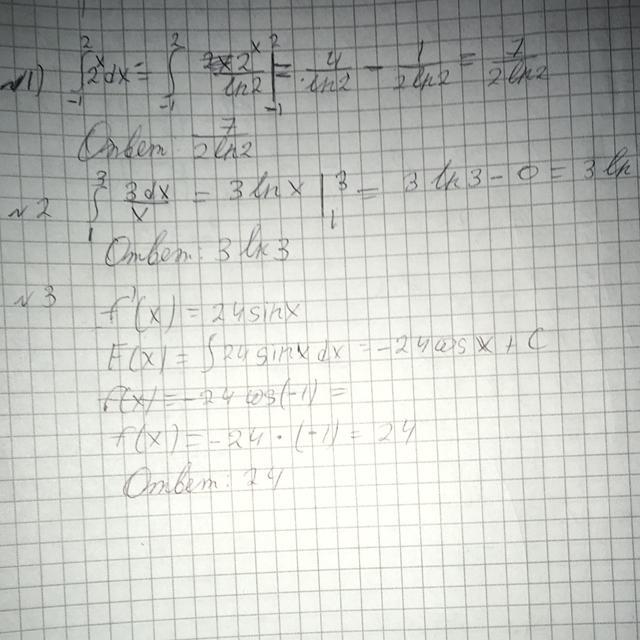 №1) ∫₋₁² 2ˣdx = ∫₋₁² 2ˣ/ln2 |₋₁² = 4/ln2 - 1/2ln2 = 7/2ln2
Ответ: 7/2ln2
№2 ∫₁³ 3dx/x = 3lnx |₁³ = 3ln3-0 = 3ln
Ответ: 3ln3
№3
f'(x) = 24sinx
F(x) = ∫24sinxdx = -24cosx + C
f(x) = -24cos(-1) =
f(x) = -24·(-1) = 24
Ответ: 24